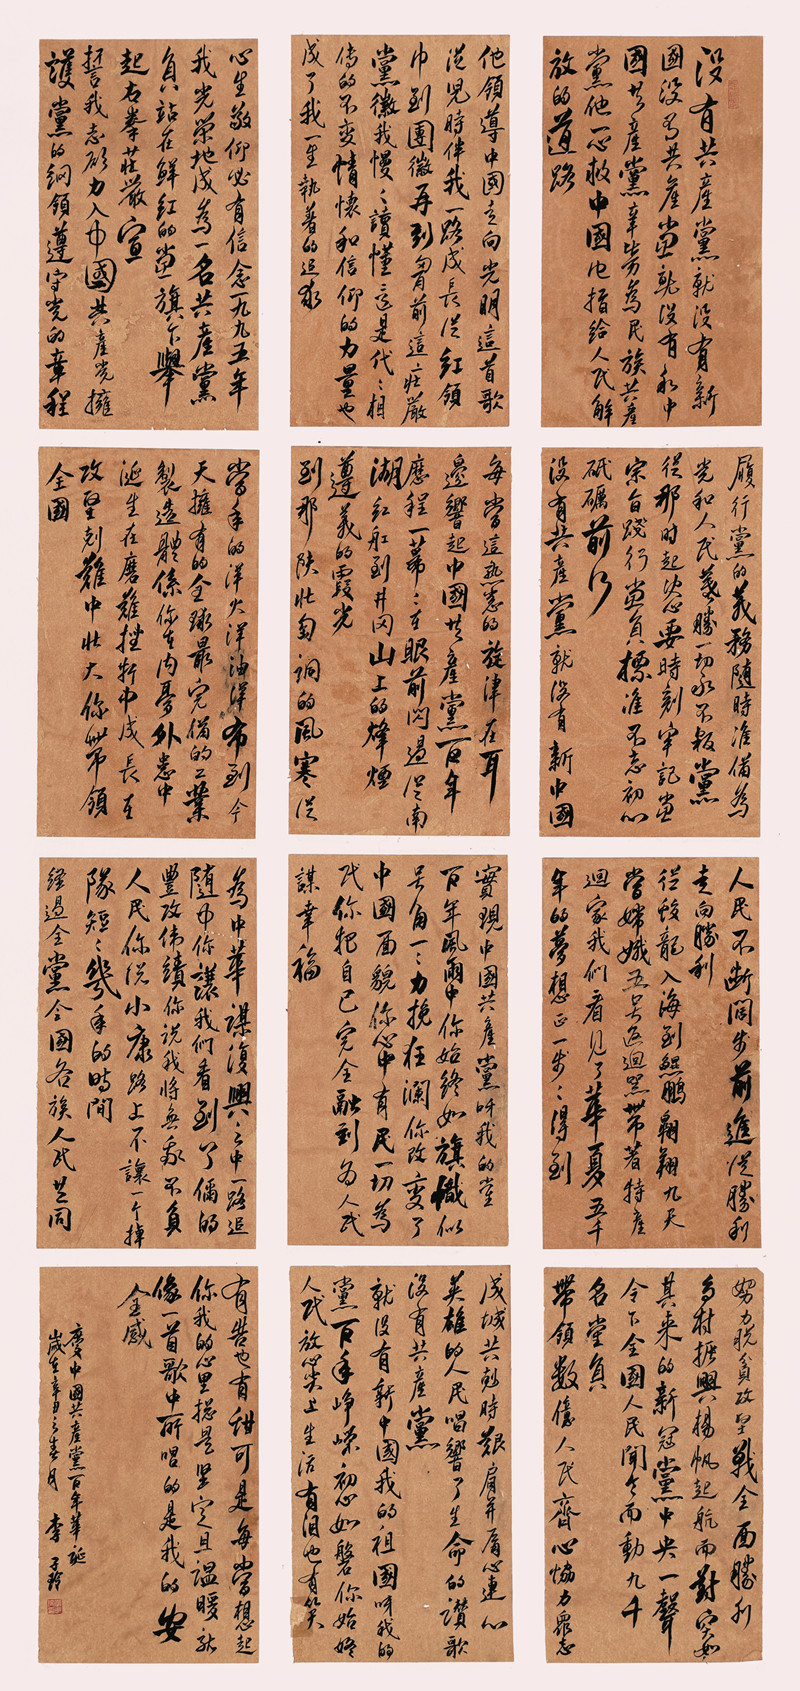 没有共產黨就没有新
國没有共產黨就没有新中
國共產黨辛勞為民族共產
黨他一心救中國他指给人民解
放的道路
他領導中國走向光明這首歌
從児時伴我一路成長從紅領
巾到團徽再到胸前這莊嚴
黨徽我慢々讀懂這是代々相
傳的不變情懷和信仰的力量也
成了我一生執著的追求
心生敬仰必有信念一九九五年
我光荣地成為一名共產黨
負站在鮮紅的黨旗下舉
起右拳莊嚴宣
誓我志願力入中國共產党擁
護黨的綱領遵守党的章程
履行黨的義務隨時准備為
党和人民義勝一切永不叛黨
從那時起决心要時刻牢記黨
宗旨踐行黨負標准不忘初心
砥礪前行
没有共產黨就没有新中國
每當這熟悉的旋津在耳
邊響起中國共產黨百年
歷程一幕々在眼前閃過從南
湖紅船到井冈山上的烽煙
遵義的霞光
到那陕北匍洞的風寒從
當年的洋火洋油洋布到今
天擁有的全球最完備的工業
製造體係你在内憂外患中
誕生在磨難挫折中成長在
攻堅剋難中壮大你带領
全國
人民不断阔步前進從勝利
走向勝利
從蛟龍入海到鯤鵬翱翔九天
當嫦娥五号返迴器帶著特産
迴家我們看見了華夏五千
年的夢想正一步々得到
實現中國共產黨呀我的堂
百年風雨中你始終如旗幟似
号角一々力挽狂瀾你改變了
中國面貌你心中有民一切為
民你把自己完全融到為人民
謀幸福
為中華謀復興之中一路追
隨中你讓我們看到了倆的
豐攻伟績你説我將無我不負
人民你説小康路上不讓一个掉
隊短々幾年的時間
經過全黨全國各族人民共同
努力脱貧攻堅戰全面勝利
乡村振興揚帆起航而對突如
其来的新冠黨中央一聲
令下全國人民聞令而動九千
名堂負
帶領數億人民齊心協力衆志
成城共尅時艱肩并肩心連心
英雄的人民唱響了生命的讃歌
没有共產黨
就没有新中國我的祖國呀我的
黨百年崢嶸初心如磐你始終
人民放心尖上生活有泪也有笑
有苦也有甜可是每當想起
你我的心里總是坚定且温暖就
像一首歌中所唱的是我的安
全感
慶中國共產黨百年華誕
歲在辛丑之春月 李